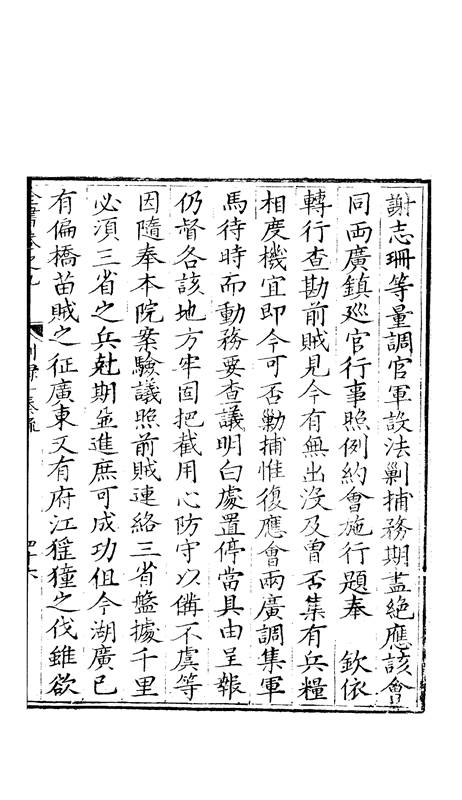 謝志珊等量調官軍設法剿捕務期盡絶應該會
同两廣鎮廵官行事照例約會施行題奉　欽依
轉行查勘前賊見今有無出没及曽否集有兵糧
相度機宜即今可否勦捕惟復應會兩廣調集軍
馬待時而動務要查議明白處置停當具由呈報
仍督各該地方牢固把截用心防守以備不虞等
因隨奉本院案驗議照前賊連絡三省盤據千里
必須三省之兵尅期並進庶可成功但今湖廣已
有偏橋苗賊之征廣東又有府江猺獞之伐雖欲